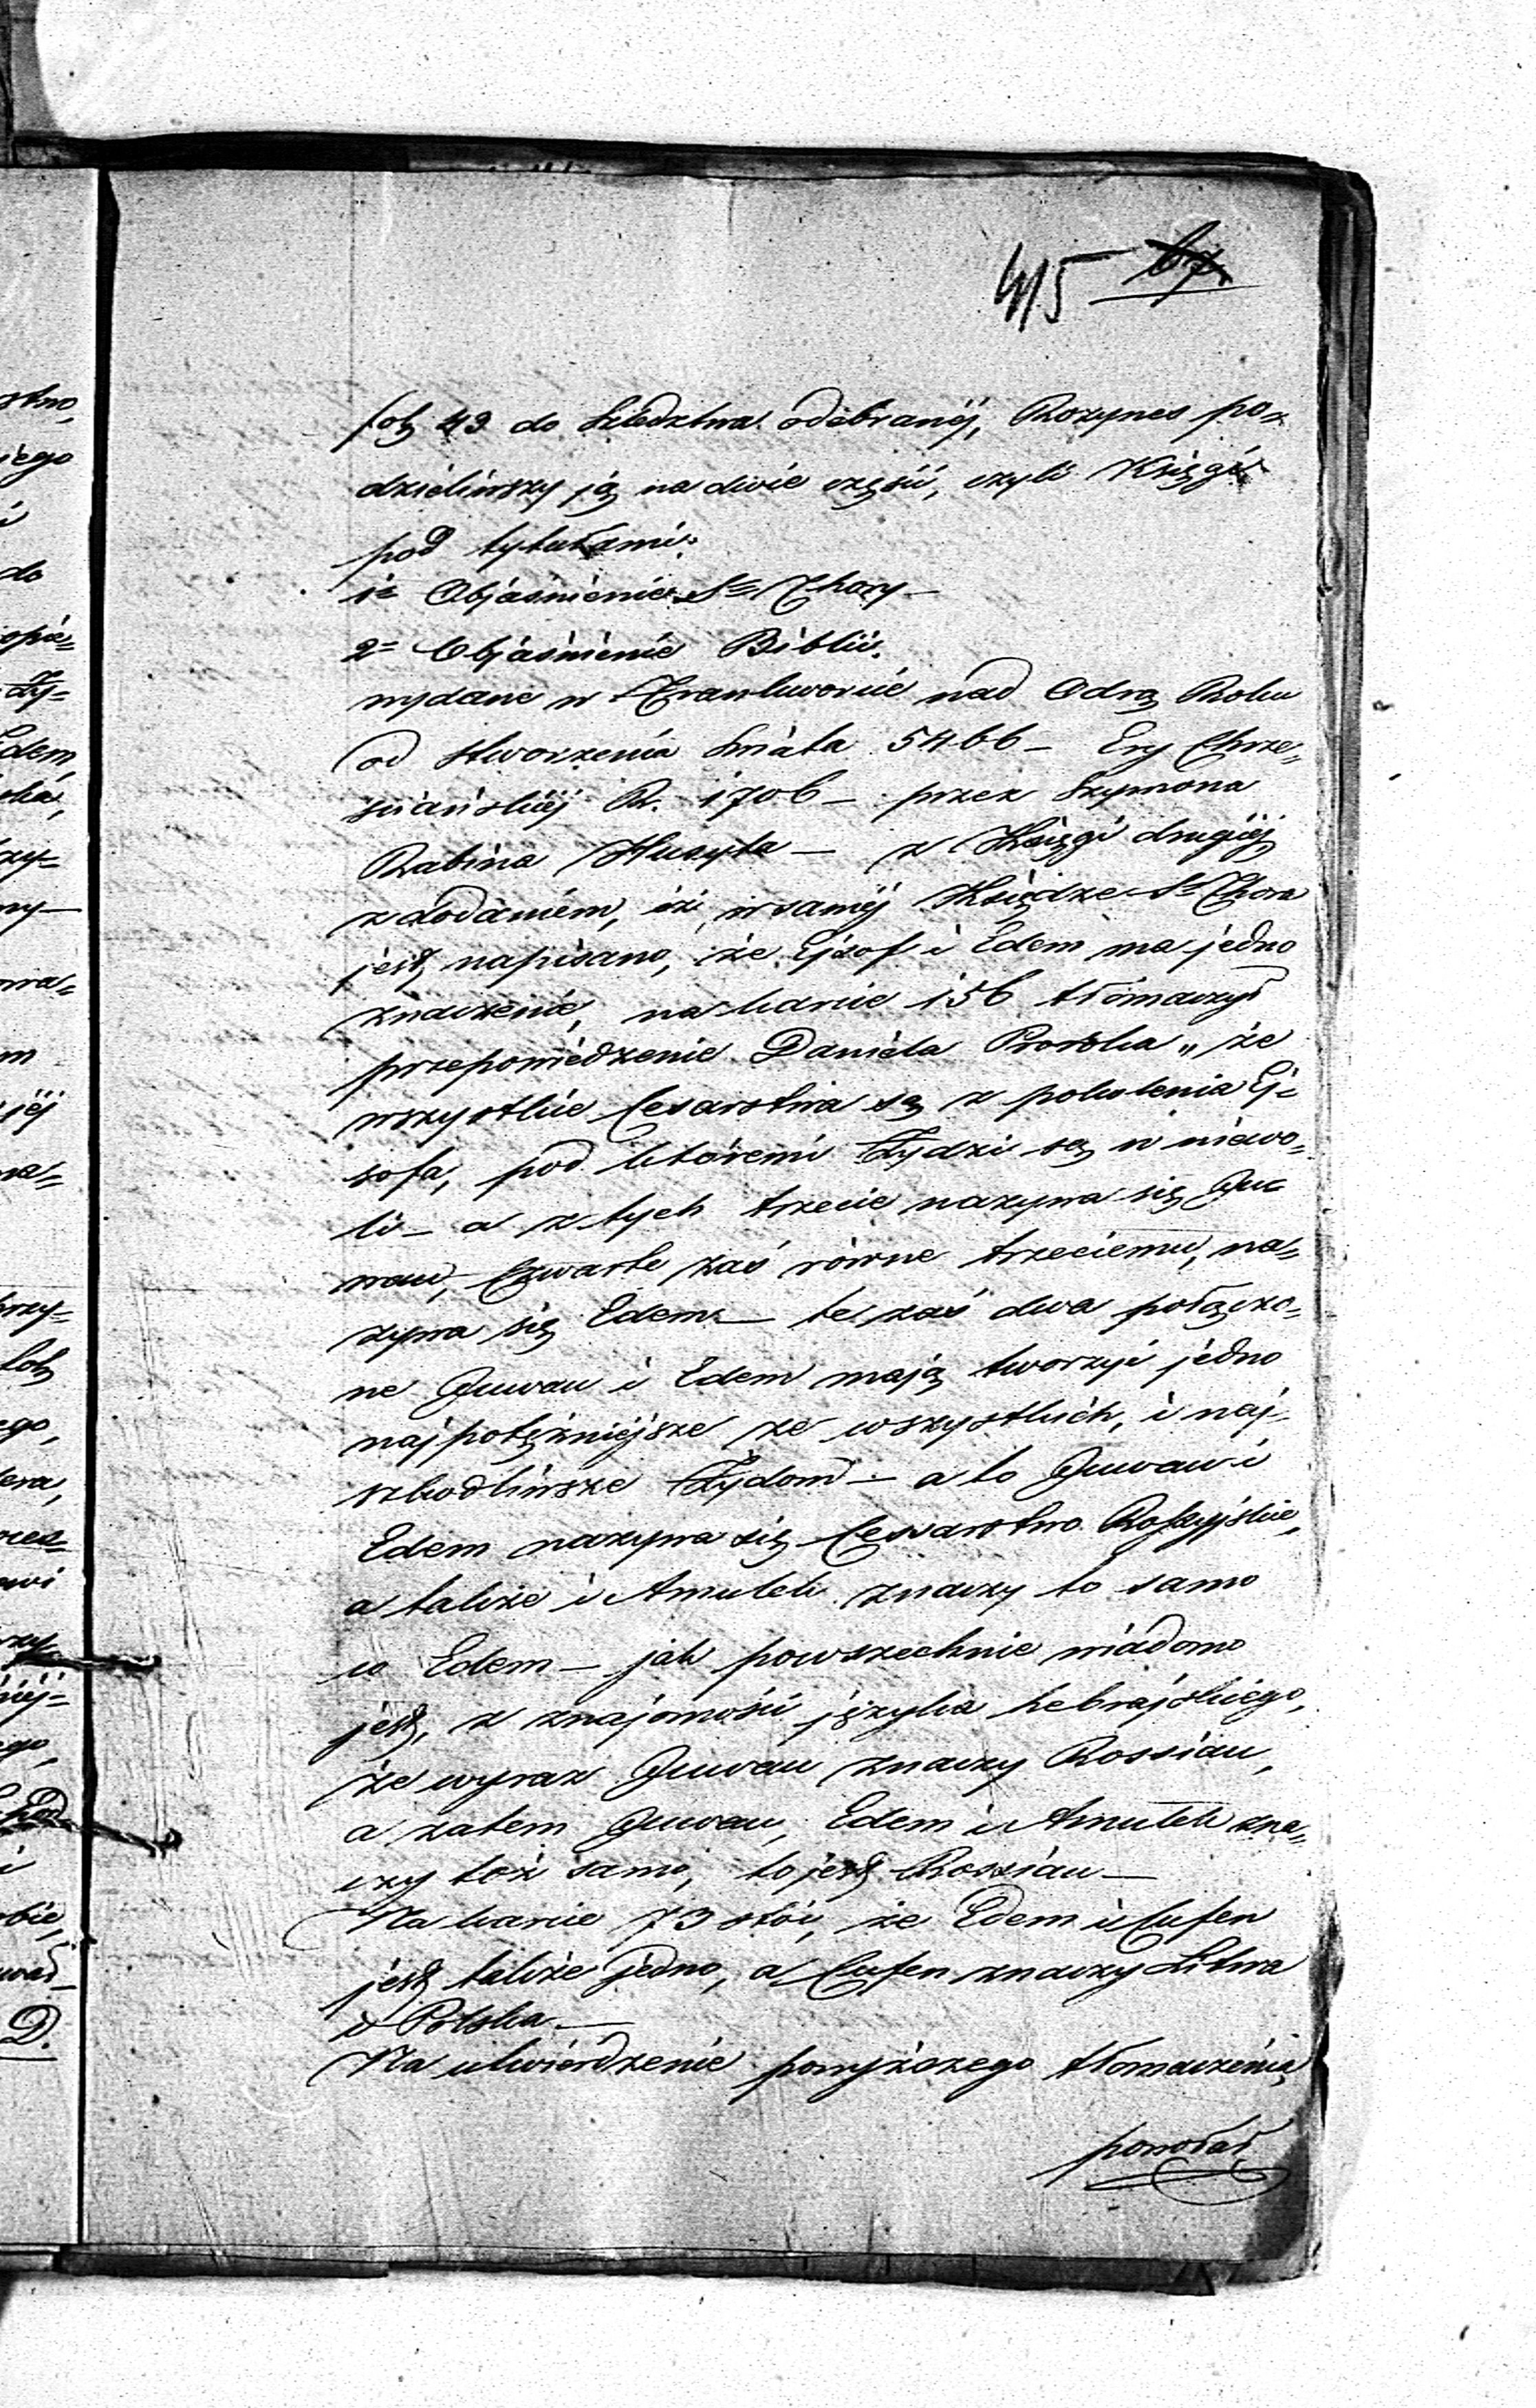 415 67.
fol. 49 do śledztwa odebranej, Rozynes po-
dzieliwszy ją na dwie części, czyli Księgi
pod tytułami:
1e Objaśnienie S= Thory —
2= Objaśnienie Biblii.
wydane w Frankworcie nad Odrą Roku
od stworzenia Świata 5466 — Ery Chrze-
sciańskiej R. 1706 — przez Szymona
Rabina — z Księgi drugiej
z dodaniem, iż w samej Księdze S= Thora
jest napisano, że Ejsof i Edem ma jedno
znaczenie, na karcie 156 tłomaczył
przepowiedzenie Daniela Proroka „ że
wszystkie Cesarstwa są z pokolenia Ej-
sofa, pod któremi Żydzi są w niewo-
li — a z tych trzecie nazywa się Ju-
wau, Czwarte zaś równe trzeciemu, na-
zywa się Edem — te zaś dwa połączo-
ne Juwau i Edem mają tworzyć jedno
najpotężniejsze ze wszystkich, i naj-
szkodliwsze Żydom — a to Juwau i
Edem nazywa się Cesarstwo Rossyjskie,
a także i Amulek znaczy to samo
co Edem — jak powszechnie wiadomo
jest, z znajomości języka hebrajskiego,
że wyraz Juwau znaczy Rossiau,
a zatem Juwau, Edem i Amulek zna-
czy toż samo, to jest Rossiau —
Na karcie 73 stoi, że Edem i Cufen
jest także jedno, a Cufen znaczy Litwa
i Polska. —
Na utwierdzenie powyższego tłomaczenia
powołał